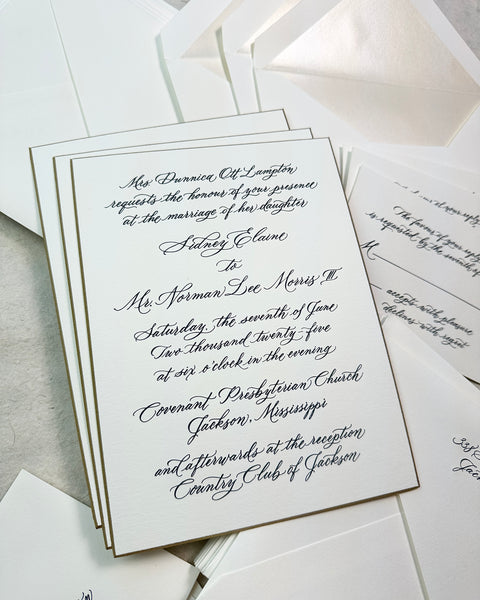 Mrs. Dunnica Ott Lampton
requests the honour of your presence
at the marriage of her daughter
Sidney Elaine
to
Mr. Norman Lee Morris III
Saturday, the seventh of June
Two thousand twenty-five
at six o'clock in the evening
Covenant Presbyterian Church
Jackson, Mississippi
and afterwards at the reception
Country Club of Jackson
The favour of your reply
is requested by the seventh of
M
accepts with pleasure
declines with regret